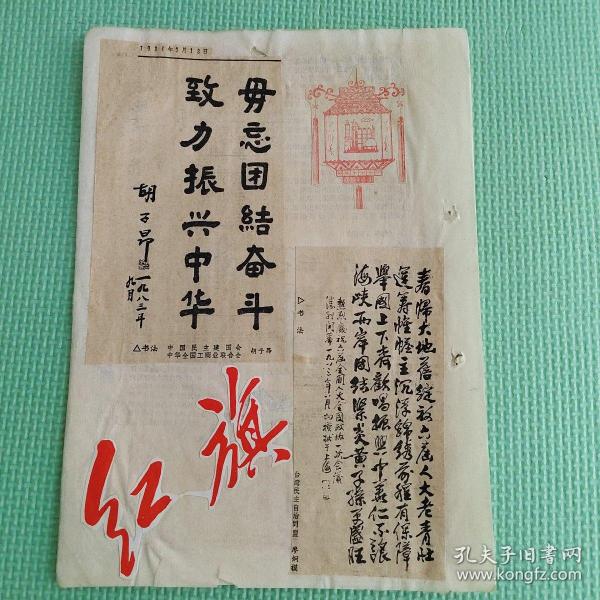 毋忘团结奋斗
致力振兴中华
胡子昂
一九八三年
九月
△书法
中国民主建国会
中华全国工商业联合会
胡子昂
春归大地蓓绽放六届人大老青壮
运筹帷幄主沉浮锦绣前程有保障
举国上下齐欢唱振兴中华仁不让
海峡两岸团结紧炎黄子孙万盛旺
△书法
台湾民主自治同盟
红旗
孔夫子旧书网
www.kongfz.com